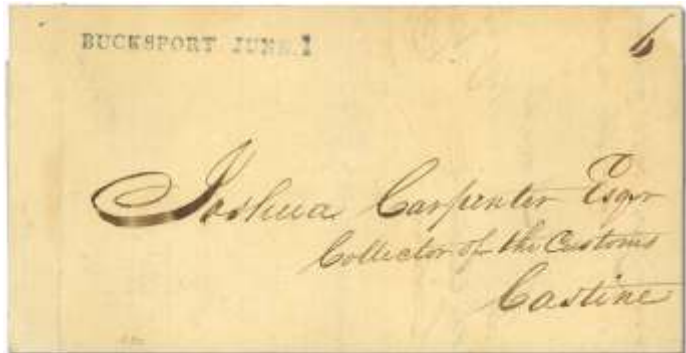 BUCKSPORT JUNE 1
6
Joshua Carpenter Esqr
Collector of the Customs
Castine